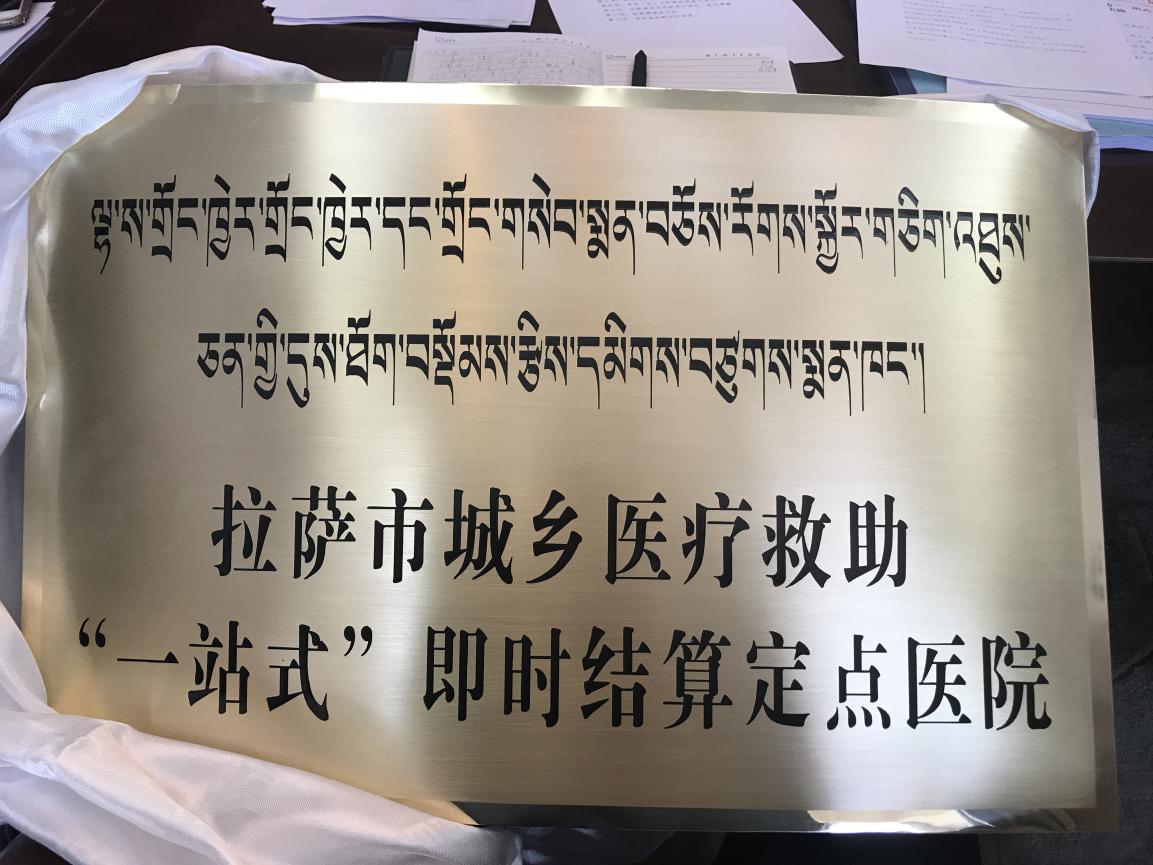 ལྷ་ས་གྲོང་ཁྱེར་གྲོང་ཁྱེར་དང་གྲོང་གསེབ་སྨན་བཅོས་རོགས་སྐྱོར་གཅིག་འཐུས་
ཅན་གྱི་དུས་ཐོག་བསྡོམས་རྩིས་དམིགས་བཙུགས་སྨན་ཁང་།
拉萨市城乡医疗救助
“一站式”即时结算定点医院